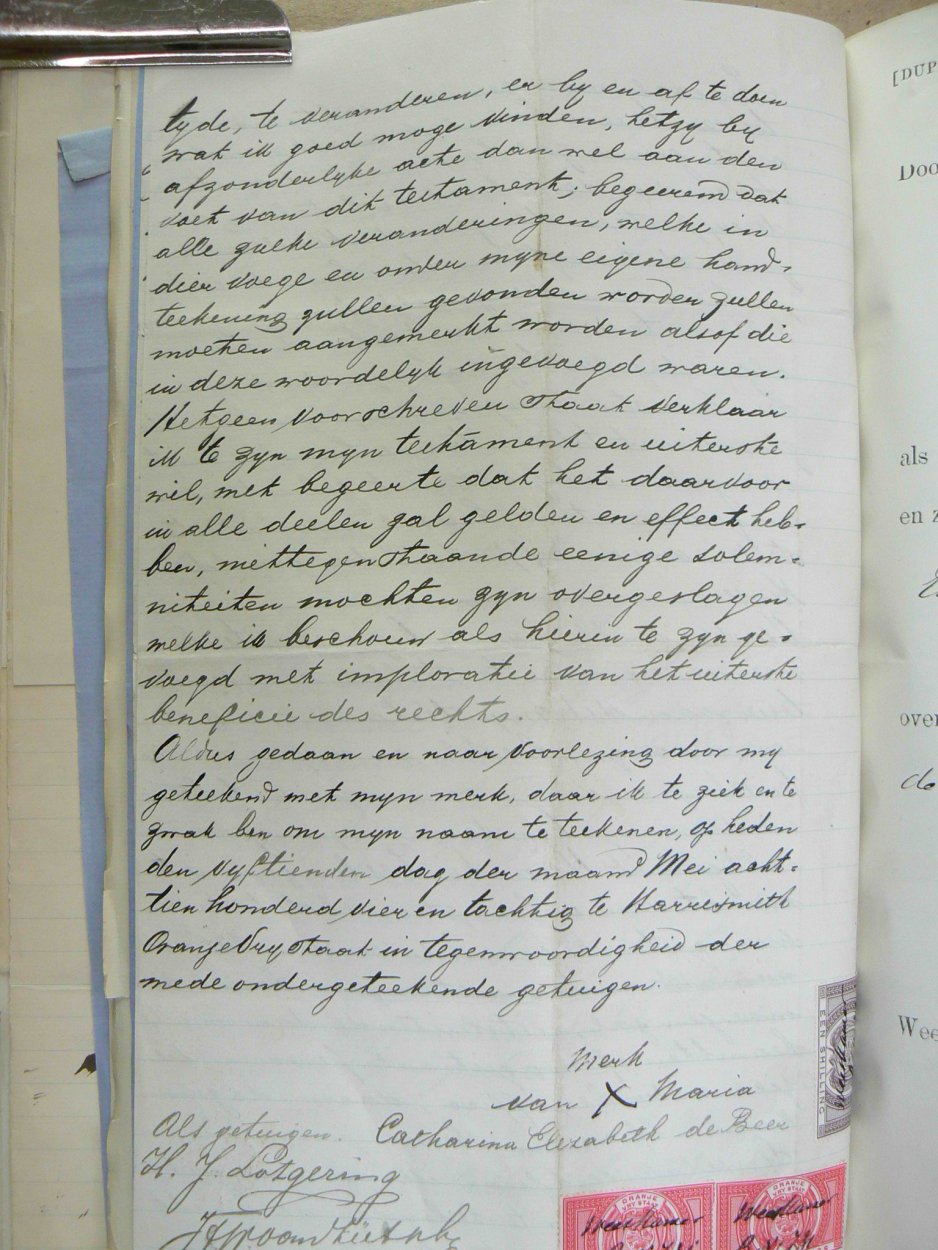 tyde, te veranderen, er by en af te doen
wat ik goed moge vinden, hetzy by
afzonderlyke acte dan wel aan den
voet van dit testament; begeerend dat
alle zulke veranderingen, welke in
dier voege en onder myne eigene hand-
teekening zullen gevonden worden zullen
moeten aangemerkt worden alsof die
in deze woordelyk ingevoegd waren.
Hetgeen voorschreven staat verklaar
ik te zyn myn testament en uiterste
wil, met begeerte dat het daarvoor
in alle deelen zal gelden en effect heb-
ben, niettegenstaande eenige solem-
niteiten mochten zyn overgeslagen
welke ik beschouw als hierin te zyn ge-
voegd met imploratie van het uiterste
beneficie des rechts.
Aldus gedaan en naar voorlezing door my
geteekend met myn merk, daar ik te ziek en te
zwak ben om myn naam te teekenen, op heden
den vyftienden dag der maand Mei acht-
tien honderd vier en tachtig te Harrismith
Oranje Vrystaat in tegenwoordigheid der
mede ondergeteekende getuigen.
Merk
van X Maria
Catharina Elizabeth de Beer
Als getuigen.
H. J. Lotgering
EEN SHILLING
ORANJE
VRY STAAT
Weeskamer
ORANJE
VRY STAAT
Weeskamer
[DUP
Doo
als
en z
over
Wee